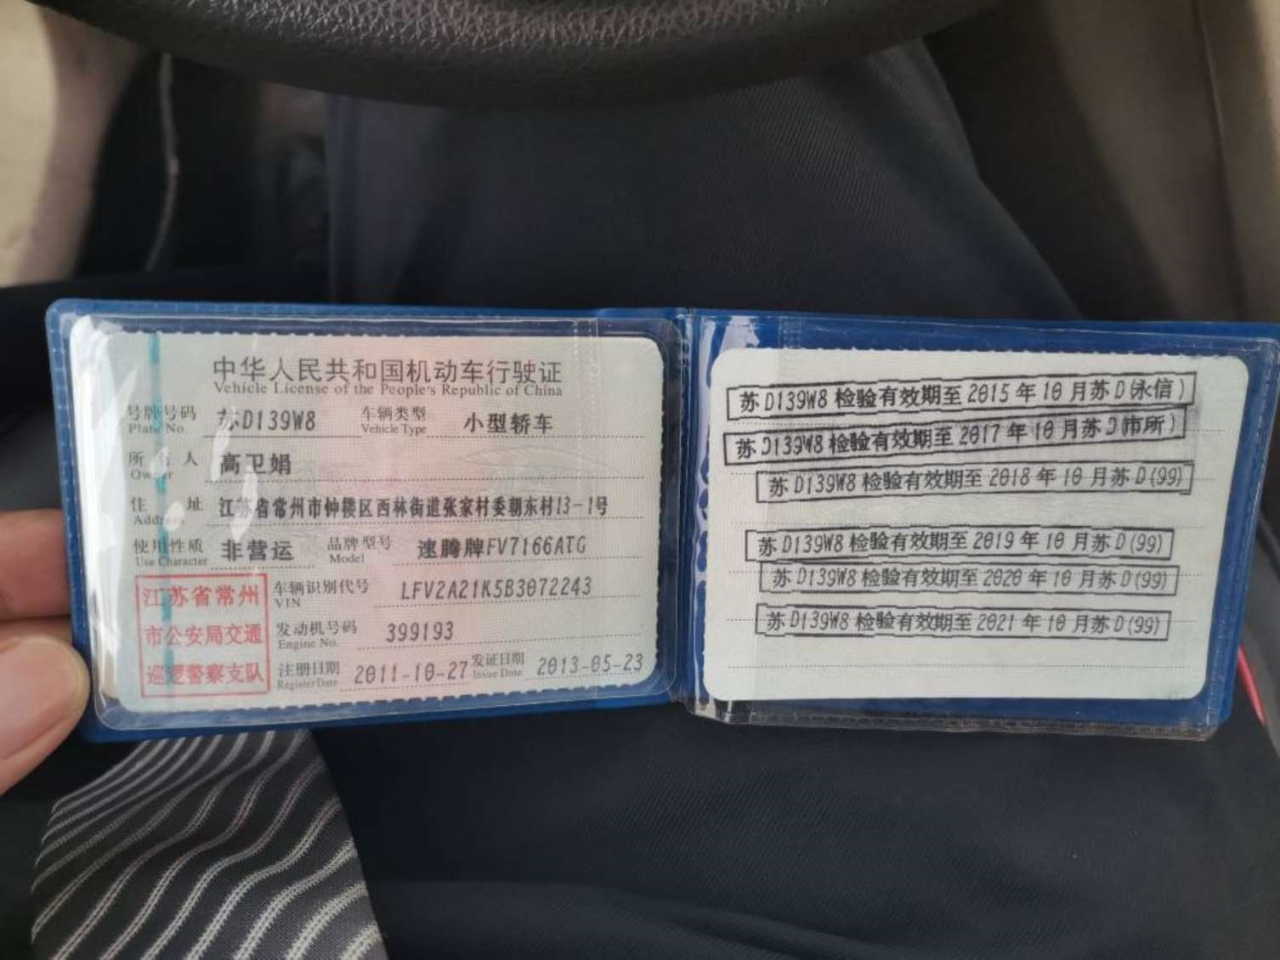 中华人民共和国机动车行驶证
Vehicle License of the People's Republic of China
号牌号码 苏D139W8 车辆类型 小型轿车
Plate No. Vehicle Type
所有人 高卫娟
Owner
住址 江苏省常州市钟楼区西林街道张家村委朝东村13-1号
Address
使用性质 非营运 品牌型号 速腾牌FV7166ATG
Use Character Model
江苏省常州
市公安局交通
巡逻警察支队
车辆识别代号 LFV2A21K5B3072243
VIN
发动机号码 399193
Engine No.
注册日期 2011-10-27 发证日期 2013-05-23
Register Date Issue Date
苏D139W8检验有效期至2015年10月苏D(永信)
苏D139W8检验有效期至2017年10月苏D(市所)
苏D139W8检验有效期至2018年10月苏D(99)
苏D139W8检验有效期至2019年10月苏D(99)
苏D139W8检验有效期至2020年10月苏D(99)
苏D139W8检验有效期至2021年10月苏D(99)